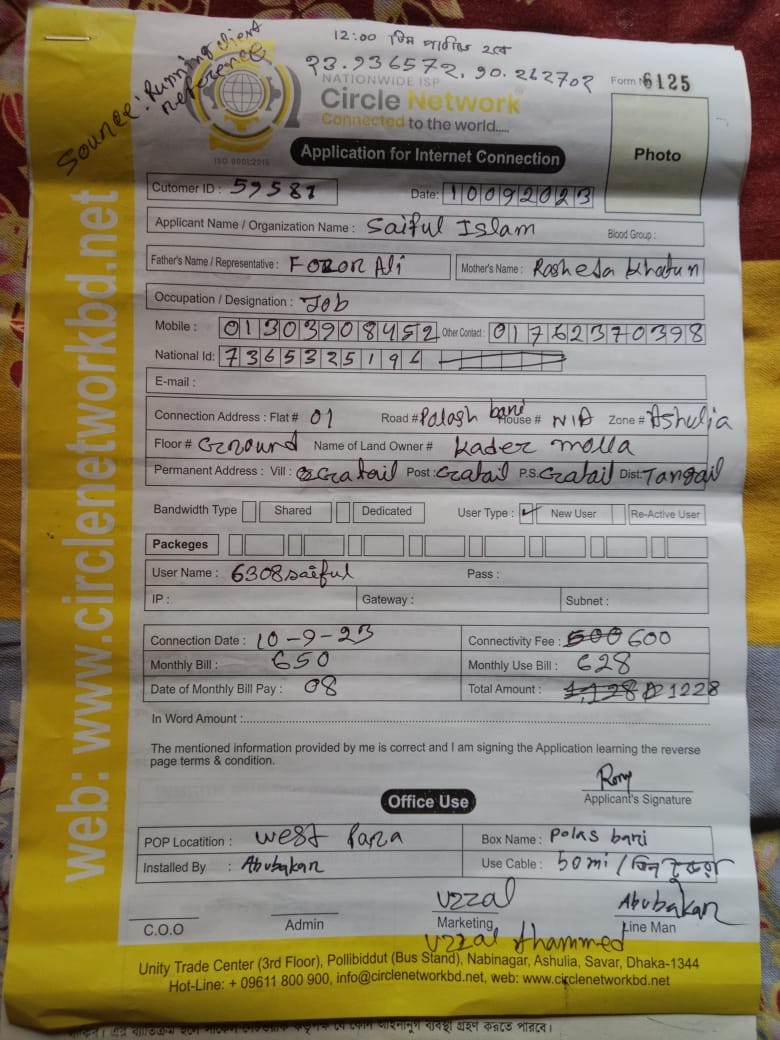 12:00
Source: Running client reference
23.936572, 90.262702
NATIONWIDE ISP
Form № 6125
Circle Network
Connected to the world.....
ISO 9001:2015
Application for Internet Connection
Photo
Cutomer ID : 59587 Date: 10092023
Applicant Name / Organization Name : Saiful Islam Blood Group :
Father's Name / Representative : Foron Ali Mother's Name : Rasheda khatun
Occupation / Designation : Job
Mobile : 01303908452 Other Contact : 01762370398
National Id: 7365325194
E-mail :
Connection Address : Flat # 01 Road # Palash bari House # N/A Zone # Ashulia
Floor # Ground Name of Land Owner # kader molla
Permanent Address : Vill : Gratail Post : Gratail P.S. Gratail Dist. Tangail
Bandwidth Type Shared Dedicated User Type : ✓ New User Re-Active User
Packeges
User Name : 6308saiful Pass :
IP : Gateway : Subnet :
Connection Date : 10-9-23 Connectivity Fee : 500 600
Monthly Bill : 650 Monthly Use Bill : 628
Date of Monthly Bill Pay : 08 Total Amount : 1,128 1228
In Word Amount :
The mentioned information provided by me is correct and I am signing the Application learning the reverse
page terms & condition.
Rony
Applicant's Signature
Office Use
POP Locatition : West Para Box Name : Polas bari
Installed By : Abubakar Use Cable : 50 mi /
Uzzal Abubakar
C.O.O Admin Marketing Line Man
Uzzal Ahammed
Unity Trade Center (3rd Floor), Pollibiddut (Bus Stand), Nabinagar, Ashulia, Savar, Dhaka-1344
Hot-Line: + 09611 800 900, info@circlenetworkbd.net, web: www.circlenetworkbd.net
web: www.circlenetworkbd.net
ব্যবস্থা গ্রহণ করতে পারবে।